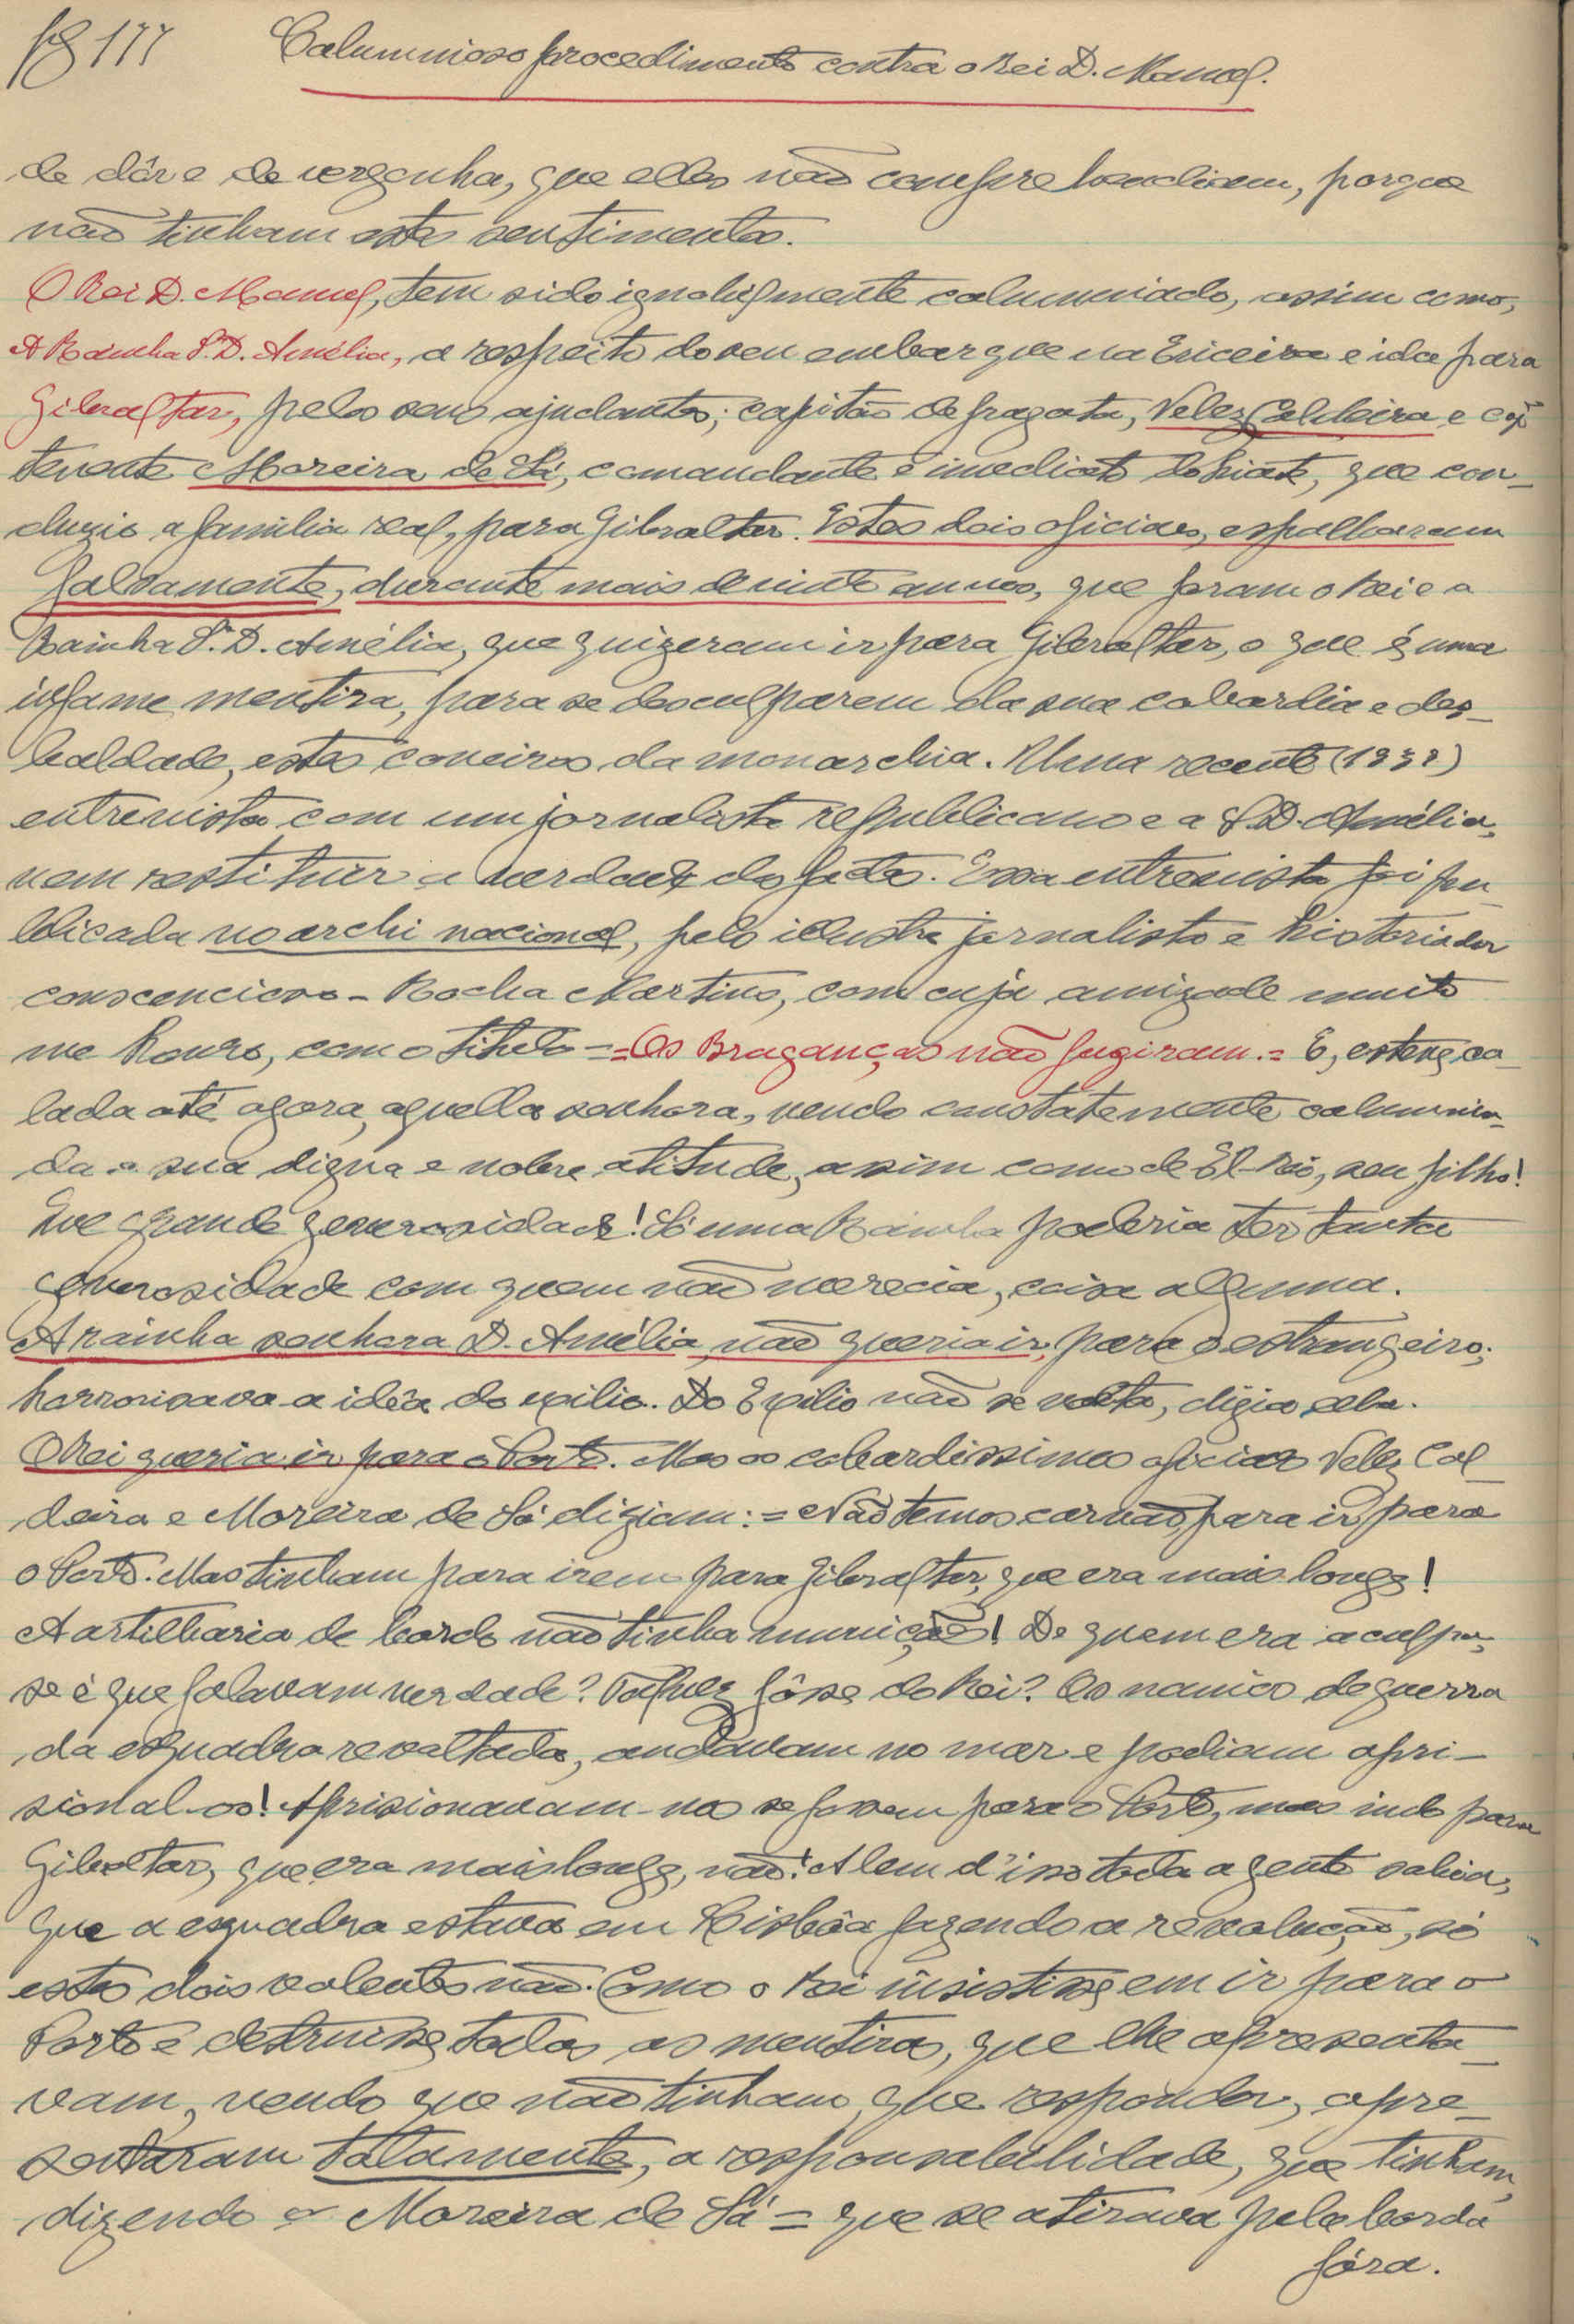 fg 177 Calumnioso procedimento contra o Rei D. Manoel.
de dôr e de vergonha, que elles não comprehendiam, porque
não tinham estes sentimentos.
O Rei D. Manuel, tem sido ignobilmente calumniado, assim como,
A Rainha Sr.ª D. Amélia, a respeito do seu embarque na Ericeira e ida para
Gibraltar, pelos seus ajudantes; capitão de fragata, Velez Caldeira e cap.
tenente Moreira de Sá, comandante e imediato do hiate, que con-
duzio a familia real, para Gibraltar. Estes dois oficiaes, espalharam
falsamente, durante mais de vinte annos, que foram o Rei e a
Rainha Sr.ª D. Amélia, que quizeram ir para Gibraltar, o que é uma
infame mentira, para se desculparem da sua cobardia e des-
lealdade, estes coveiros da monarchia. Uma recente (1938)
entrevista com um jornalista republicano e a S.D. Amélia,
vem restituir a verdade dos fatos. Essa entrevista foi pu-
blicada no archi nacional, pelo ilustre jornalista e historiador
conscencioso - Rocha Martins, com cuja amizade muito
me honro, com o titulo = Os Braganças não fugiram. = E, esteve ca-
lada até agora, aquella senhora, vendo constatemente calumnia-
da a sua digna e nobre atitude, assim como de El-Rei, seu filho!
Que grande generosidade! Só uma Rainha poderia ter tanta
generosidade com quem não merecia, coisa alguma.
A rainha senhora D. Amélia, não queria ir, para o estrangeiro;
horrorisava-a a idêa do exilio. Do Exilio não se volta, dizia ella.
O Rei queria ir para o Porto. Mas os cobardissimos oficiaes Velez Cal-
deira e Moreira de Sá diziam: = Não temos carvão, para ir para
o Porto. Mas tinham para irem para Gibraltar, que era mais longe!
A artilharia de bordo não tinha munição! De quem era a culpa,
se é que falavam verdade? Talvez fôsse do Rei? Os navios de guerra
da esquadra revoltada, andavam no mar e podiam apri-
sional-os! Aprisionavam-nos se fossem para o Porto, mas indo para
Gibraltar, que era mais longe, não! Alem d'isso toda a gente sabia,
que a esquadra estava em Lisbôa fazendo a revolução, só
estes dois valentes não. Como o Rei insistisse em ir para o
Porto e destruisse todas as mentiras, que lhe apresenta-
vam, vendo que não tinham, que responder, apre-
sentaram tolamente, a responsabilidade, que tinham,
dizendo o Moreira de Sá = que se atirava pela borda
fóra.